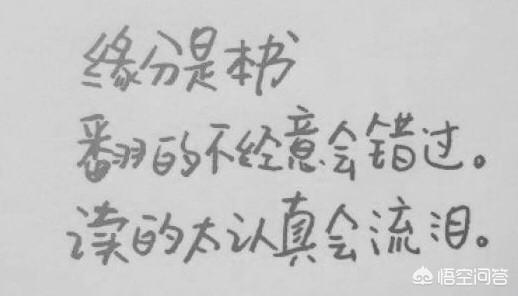 缘分是本书
翻的不经意会错过。
读的太认真会流泪。
悟空问答